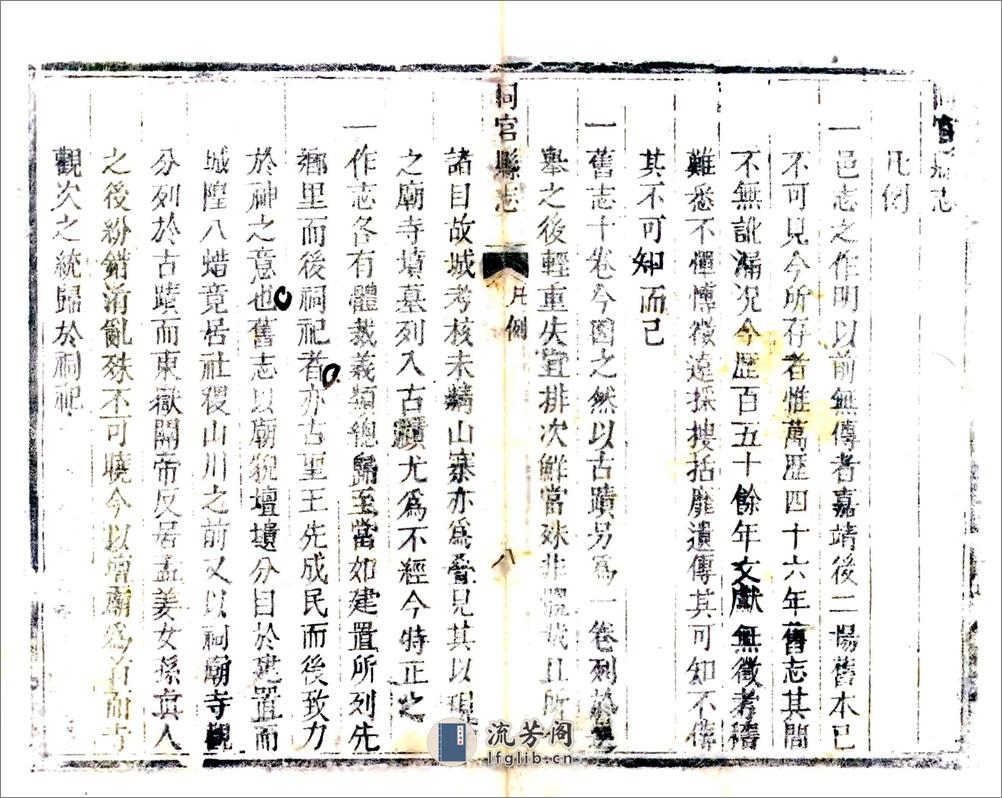 同官縣志
凡例
一邑志之作明以前無傳者嘉靖後二賜舊本已
不可見今所存者惟萬歷四十六年舊志其間
不無訛漏况今歷百五十餘年文獻無徵考稽
難悉不憚博徵遠採搜括靡遺傳其可知不傳
其不可知而已
一舊志十卷今因之然以古蹟另為一卷列於
舉之後輕重失宜排次鮮當殊非體裁且所
諸目故城考核未精山寨亦為疊見其以現
之廟寺墳墓列入古蹟尤為不經今特正之
一作志各有體裁義類總歸至當如建置所列先
鄉里而後祠祀者亦古聖王先成民而後致力
於神之意也舊志以廟貌壇壝分目於建置而
城隍八蜡竟居社稷山川之前又以祠廟寺觀
分列於古蹟而東嶽關帝反居孟姜女孫真人
之後紛錯淆亂殊不可曉今以壇廟為首而寺
觀次之統歸於祠祀
同官縣志
凡例
八
流芳阁
lfglib.cn